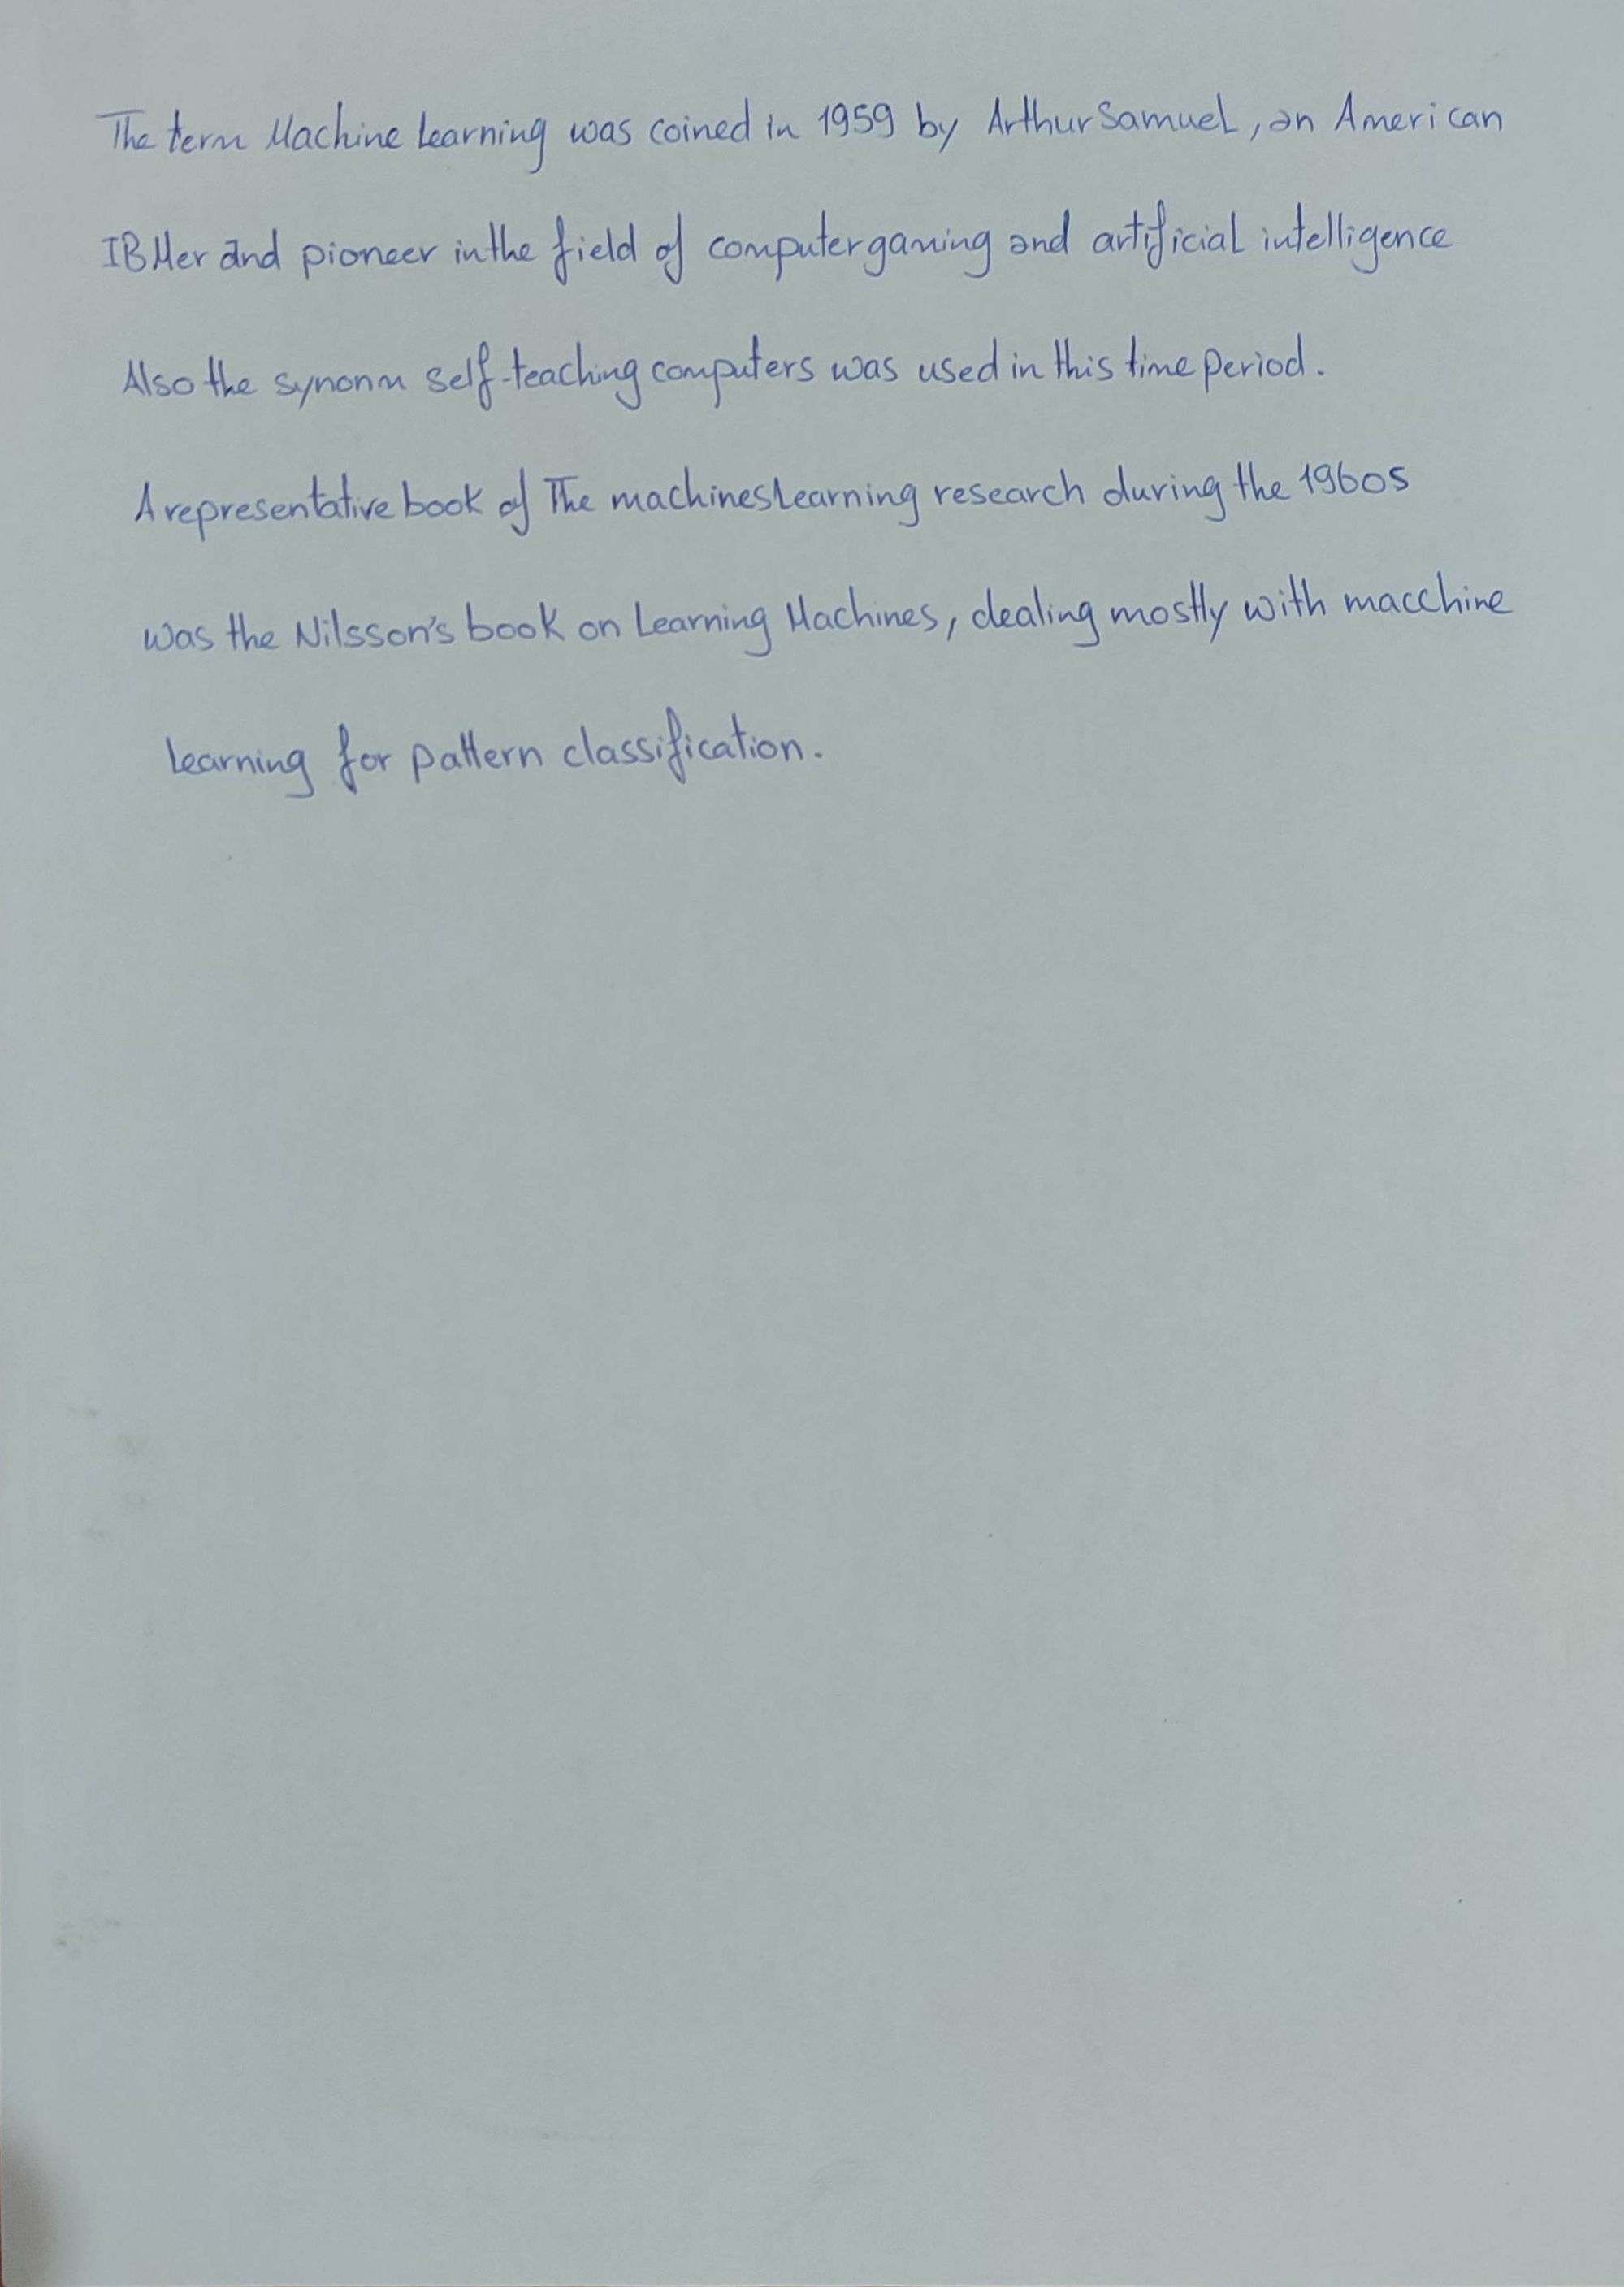 The term Machine Learning was coined in 1959 by Arthur Samuel, an American
IBMer and pioneer in the field of computer gaming and artificial intelligence
Also the synonm self-teaching computers was used in this time period.
A representative book of The machines Learning research during the 1960s
was the Nilsson's book on Learning Machines, dealing mostly with macchine
learning for pattern classification.